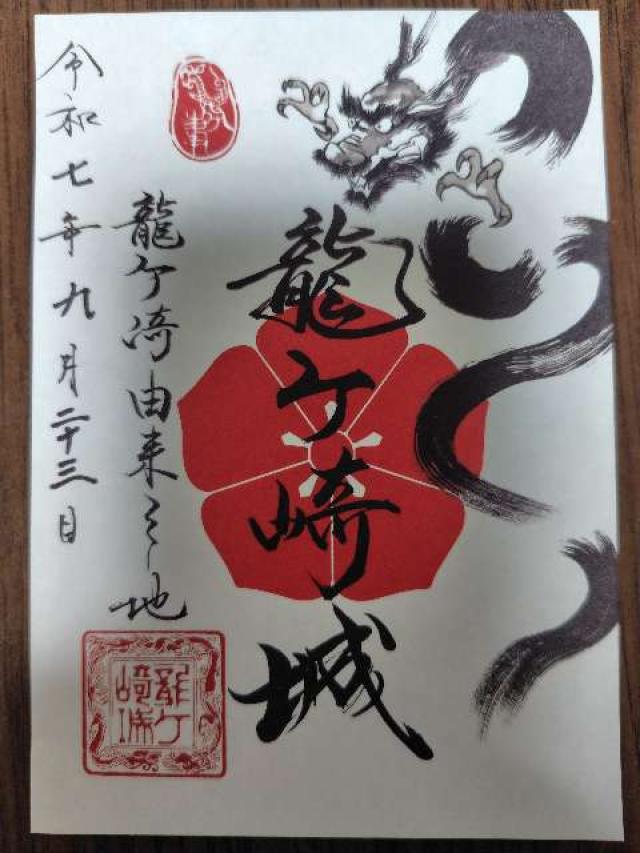 龍ケ崎城
龍ケ崎由来之地
令和七年九月二十三日
龍ケ
崎城